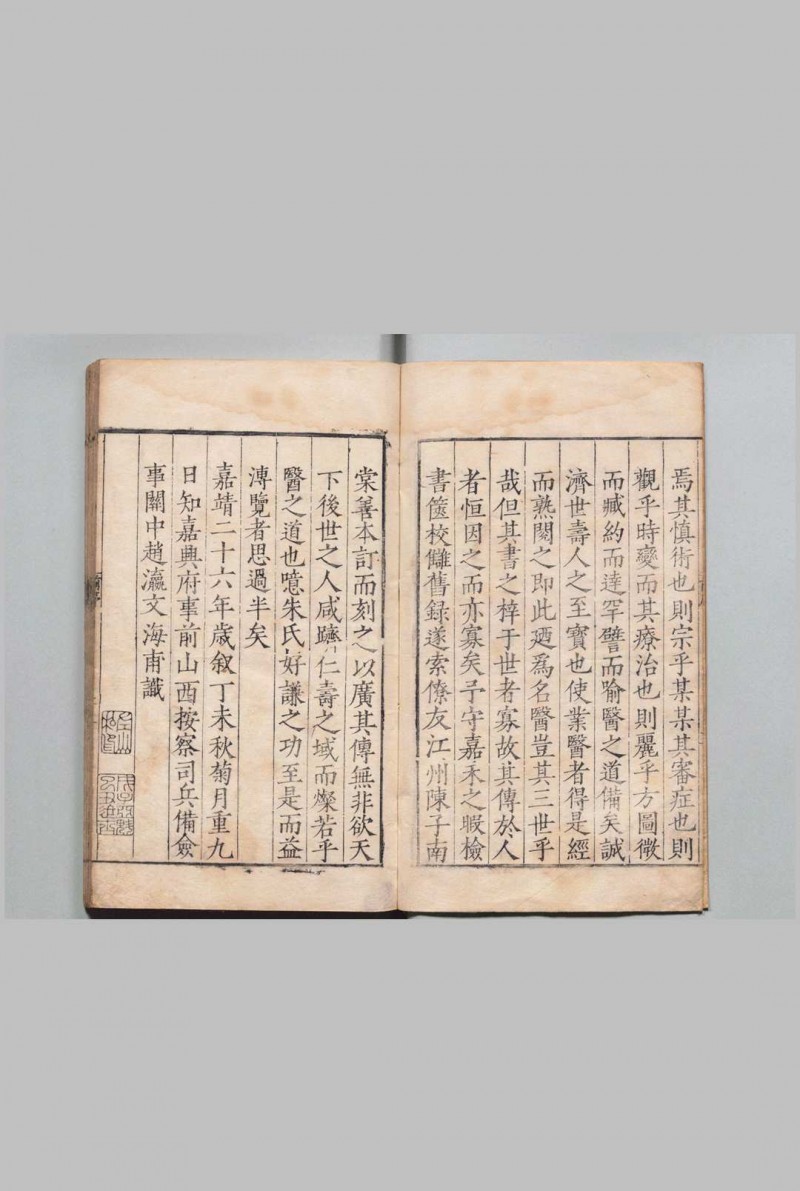 焉其慎術也則宗乎某某其審症也則
觀乎時變而其療治也則麗乎方圖微
而臧約而逹罕譬而喻醫之道備矣誠
濟世壽人之至寶也使業醫者得是經
而熟閱之即此廼爲名醫豈其三世乎
哉但其書之梓于世者寡故其傳於人
者恒因之而亦寡矣予守嘉禾之暇檢
書篋校讎舊録遂索僚友江州陳子南
棠善本訂而刻之以廣其傳無非欲天
下後世之人咸躋仁壽之域而燦若乎
醫之道也噫朱氏好謙之功至是而益
溥覽者思過半矣
嘉靖二十六年歲叙丁未秋菊月重九
日知嘉興府事前山西按察司兵備僉
事關中趙瀛文海甫識